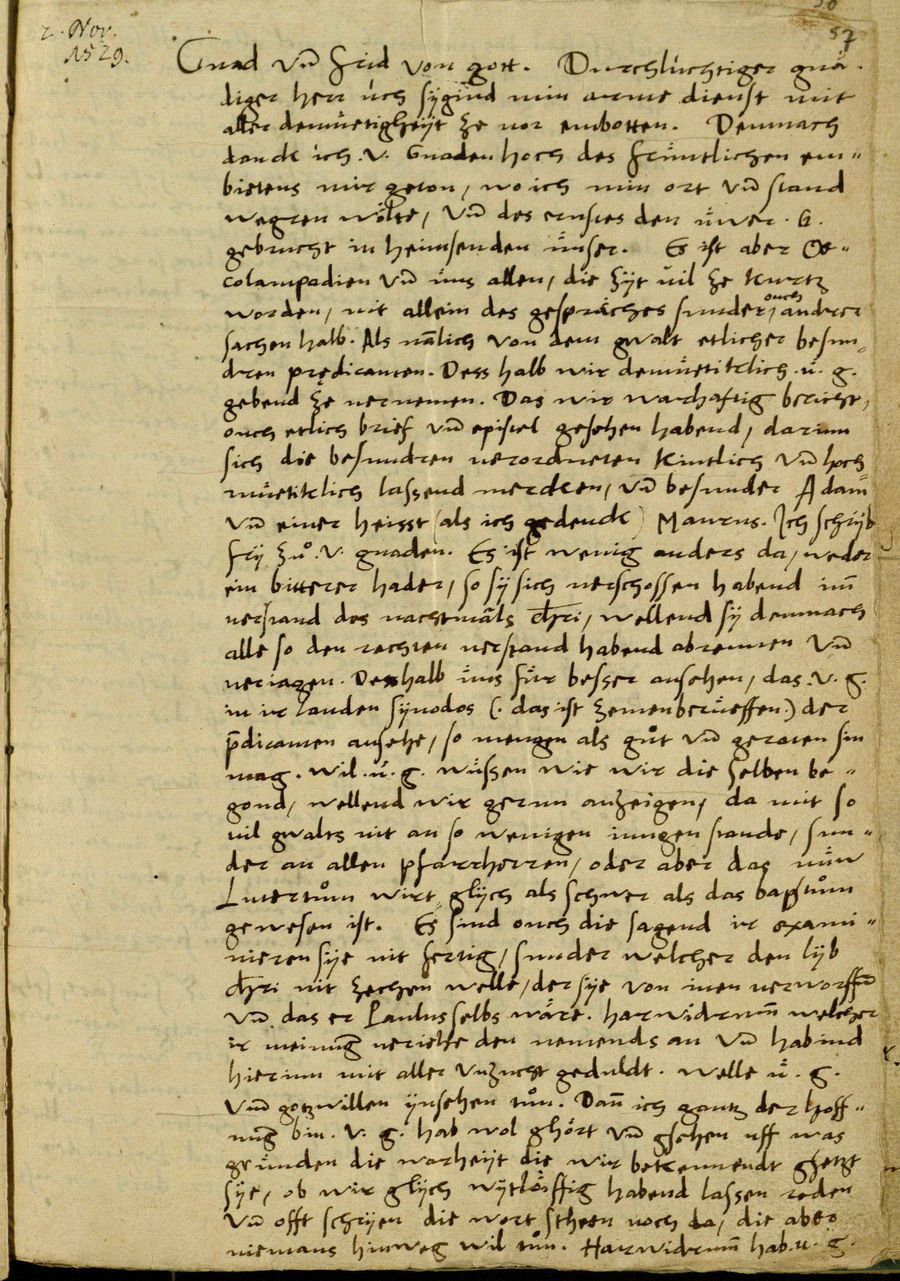 57
2. Nov.
1529.
Gnad vnd frid von gott. Durchlúchtiger gnä-
diger herr úch sygind min arme dienst mit
aller demuͤtigheyt ze vor embotten. Demnach
danck ich .V. Gnaden hoch des früntlichen em-
bietens mir geton, wo ich min ort vnd stand
wegren wölte, vnd des ernstes den üwer .G.
gebrucht in heimsenden ünser. Es ist aber Oe-
colampadien vnd üns allen, die zyt vil ze kurtz
worden, nit allein des gespräches sunder ouch andrer
sachen halb. Als nālich von dem gwalt etlicher besun-
dren prędicanten. Dess halb wir demuͤtiklich .ü. g.
gebend ze vernemen. Das wir warhaftig bericht,
ouch etlich brief vnd epistel gesehen habend, darinn
sich die besundren verordneten kintlich vnd hoch
muͤtiklich lassend mercken, vnd besunder Adam
vnd einer heisst (als ich gedenck) Maurus. Ich schryb
fry zuͦ .V. gnaden. Es ist wenig anders da, weder
ein bitterer hader, so sy sich verschossen habend im̄
verstand des nachtmāls Chri, wellend sy demnach
alle so den rechten verstand habend abrennen vnd
veriagen. Desshalb üns für besser ansehen, das .V. g.
in ir landen synodos (.das ist zemenberuͤffen.) der
p̄dicanten ansehe, so mengen als guͦt vnd geraten sin
mag. Wil .ü. g. wüssen wie wir die selben be-
gond, wellend wir gernn anzeigen, da mit so
vil gwalts nit an so wenigen iungen stande, sun-
der an allen pfarrherren, oder aber das nüw
Lutertuͦm wirt glych als schwer als das bapstuͦm
gewesen ist. Es sind ouch die sagend ir exami-
nieren sye nit fertig, sunder welcher den lyb
Chri nit zechen welle, der sye von inen verworffē
vnd das er Paulus selbs wäre. Harwidrum̄ welcher
ir meinung veriehe den nemends an vnd habind
hierinn mit aller vnzucht geduldt. Welle ü. g.
vmb gotzwillen ynsehen tuͦn. Dan̄ ich gantz der hoff-
nung bin .V. g. hab wol ghört vnd gsehen uff was
gründen die warheyt die wir bekennendt gsetzt
sye, ob wir glych wytlöiffig habend lassen reden
vnd offt schryen die wort stheen noch da, die aber
niemans hinweg wil tuͦn. Harwidrum̄ hab .ü. g.